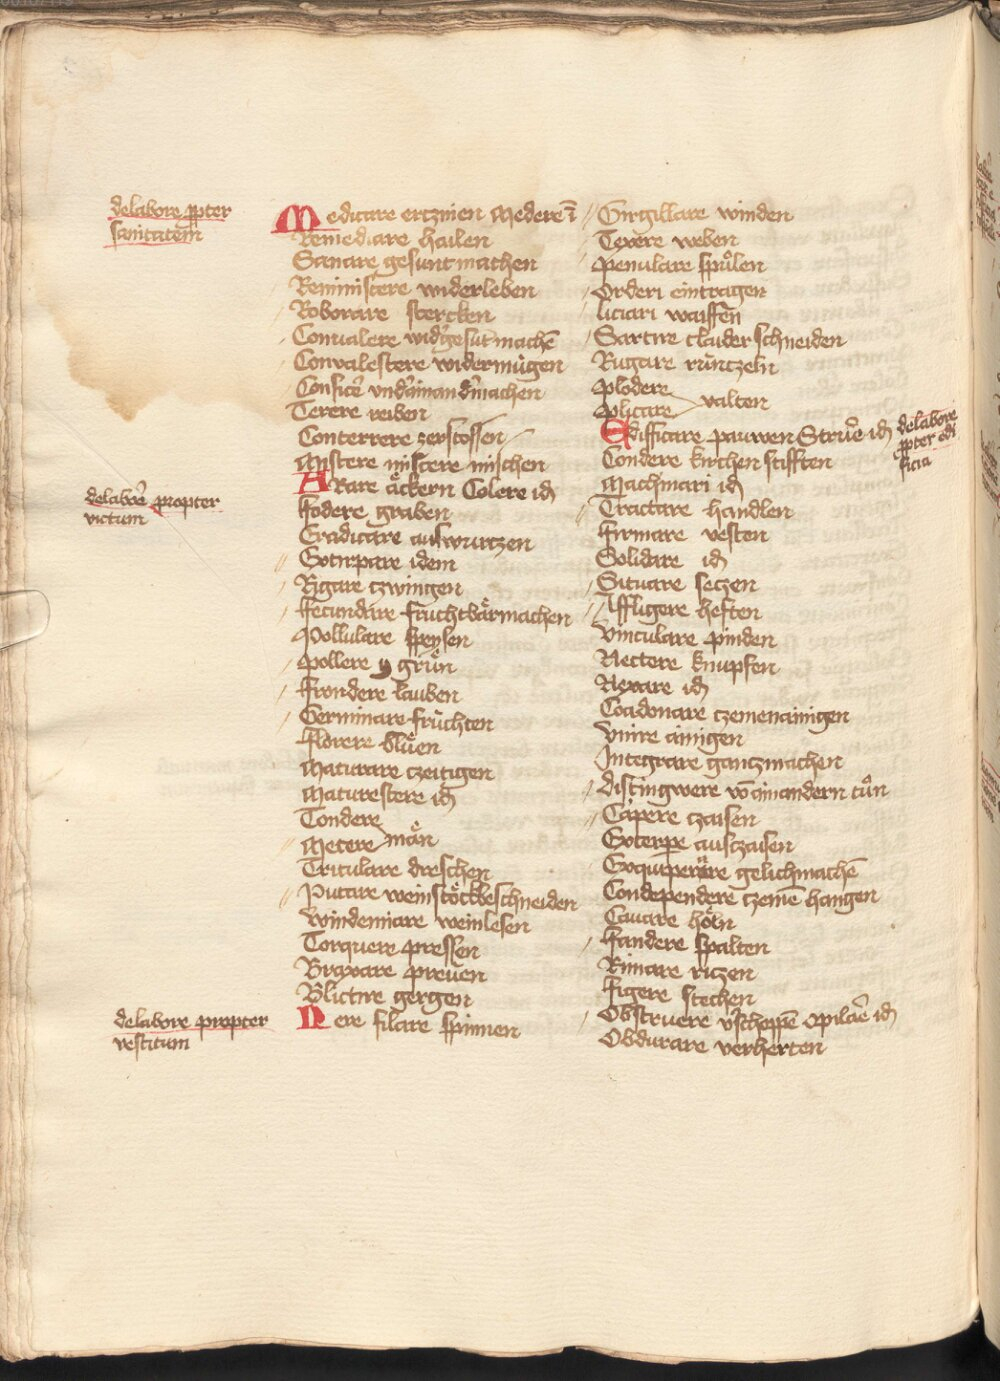 de labore ꝓpter
sanitatem
Medicare ertznien Mederi
Remediare hailen
Sanare gesunt machen
Reminiscere widerleben
Roborare stercken
Conualere wid'gesūt machē
Convalescere widermügen
Terere reiben
Conterrere zerstossen
Mistere miscere mischen
de labor̄e propter
victum
Arare äckern Colere id
fodere graben
Eradicare auswurtzen
Extirpare idem
Rigare tzwingen
fecundare fruchtbär machen
Pollulare speysen
Pollere grün
Frondere lauben
Germinare früchten
florere blüen
Maturare tzeitigen
Maturescere id
Tondere
Metere män
Tritulare dreschen
Puttare weinstöck beschneiden
Windemiare weinlesen
Torquere pressen
Braxare preuen
Blictire gergen
de labore propter
vestitum
Nere filare spinnen
Girgillare winden
Texere weben
Penulare spůlen
Orderi eintragen
liciari waiffen
Sartire claider schneiden
Ruggare rüntzeln
Plodere
Plicare valten
de labore
ꝓpter edi
ficia
Edifficare pauwen Struē id
Condere kirchen stifften
Machinari id
Tractare handlen
firmare vesten
Solidare id
Situare seczen
Affligere heften
Vinculare pinden
Nectere knupfen
Nexare id
Coadonare tzemenainigen
Vnire ainigen
Integrare gantzmachen
Distingwere vō ainandern tůn
Capere tzaisen
Exterpe ausczaisen
Exquiperare gelichmachē
Condependere tzemē hangen
Cauare höln
fandere spalten
Rimare riczen
figere stechen
Obstruere v'schoppē opilāe id
Obdurare verherten